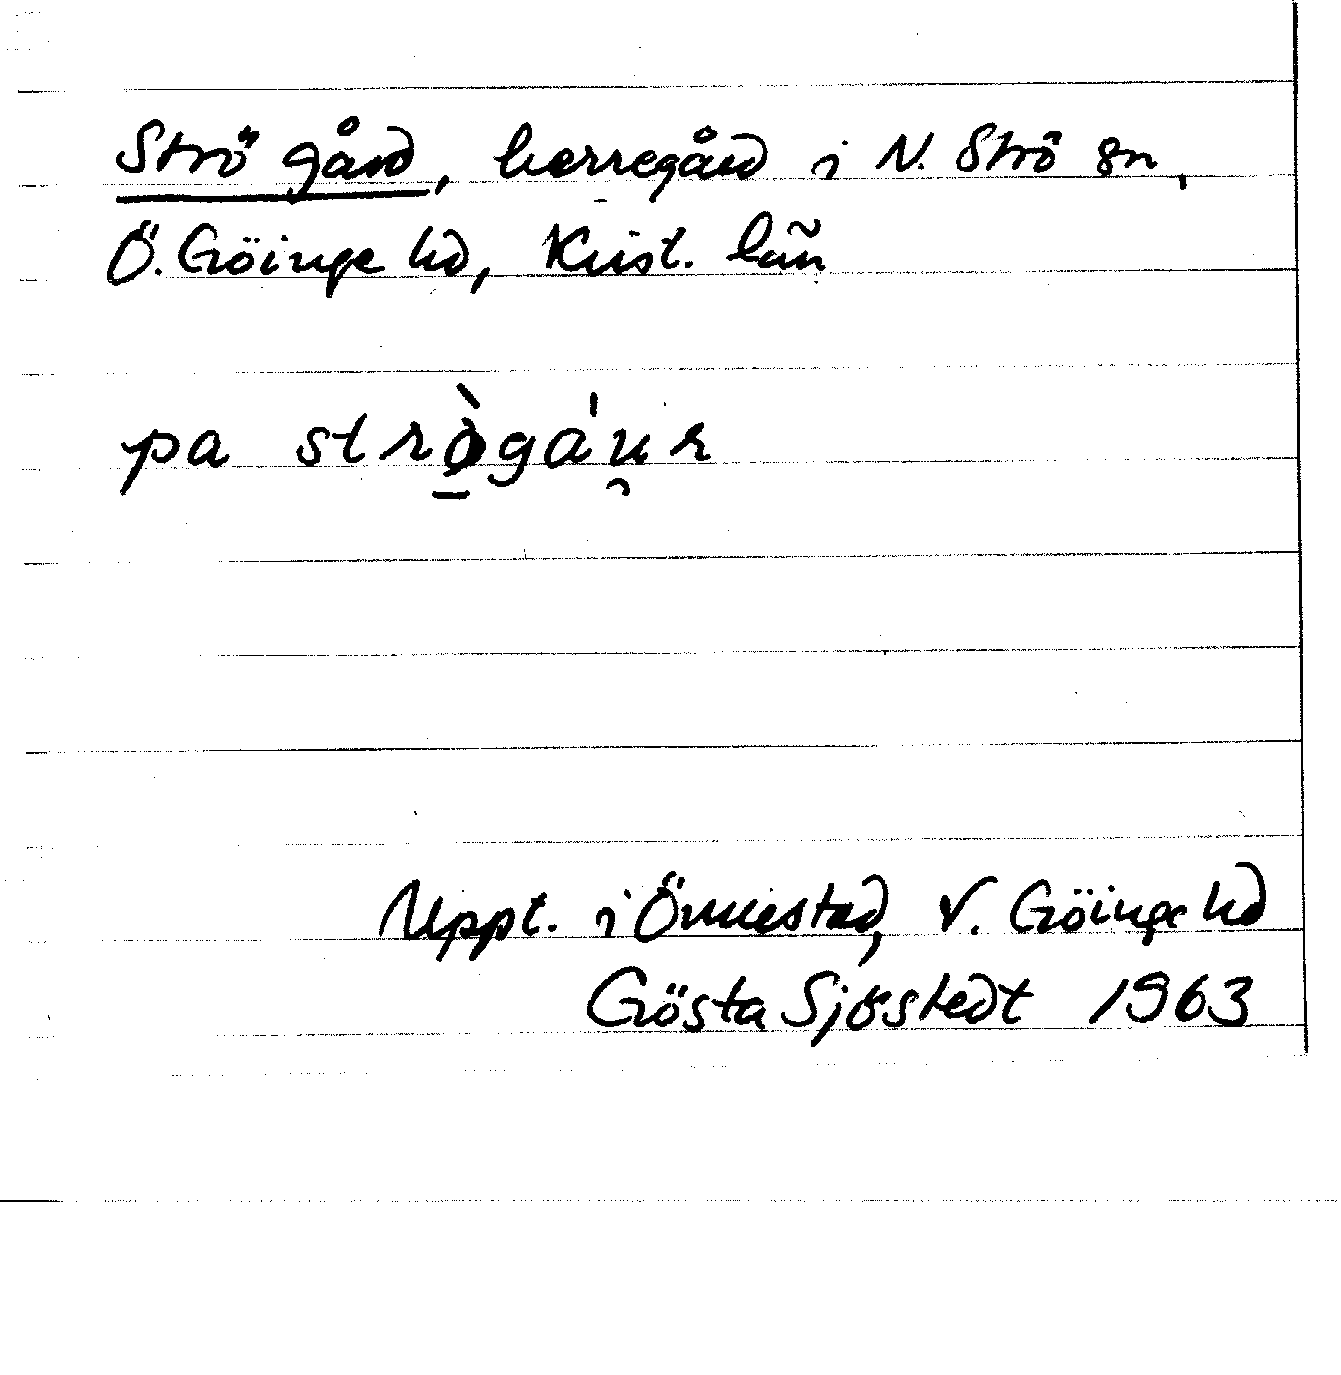 Strö gård, herregård i N. Strö sn,
Ö. Göinge hd, Krist. län
pa strø̀gáu̯r
Uppt. i Önnestad, V. Göinge hd
Gösta Sjöstedt 1963